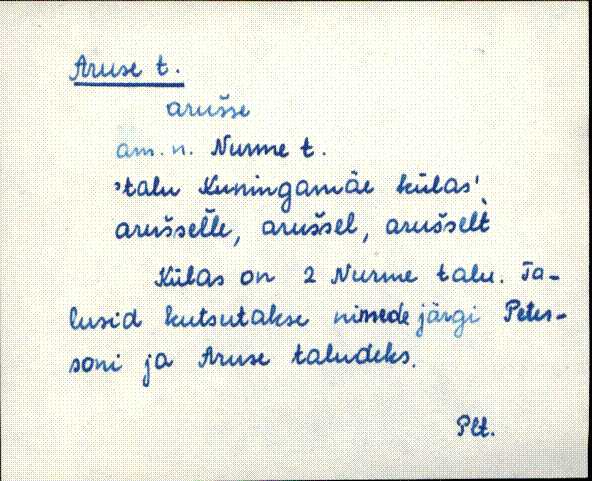 Aruse t.
arušse
am. n. Nurme t.
'talu Kuningamäe külas',
arušselle, arušsel, arušselt
Külas on 2 Nurme talu. Ta-
lusid kutsutakse nimede järgi Peter-
soni ja Aruse taludeks.
Plt.